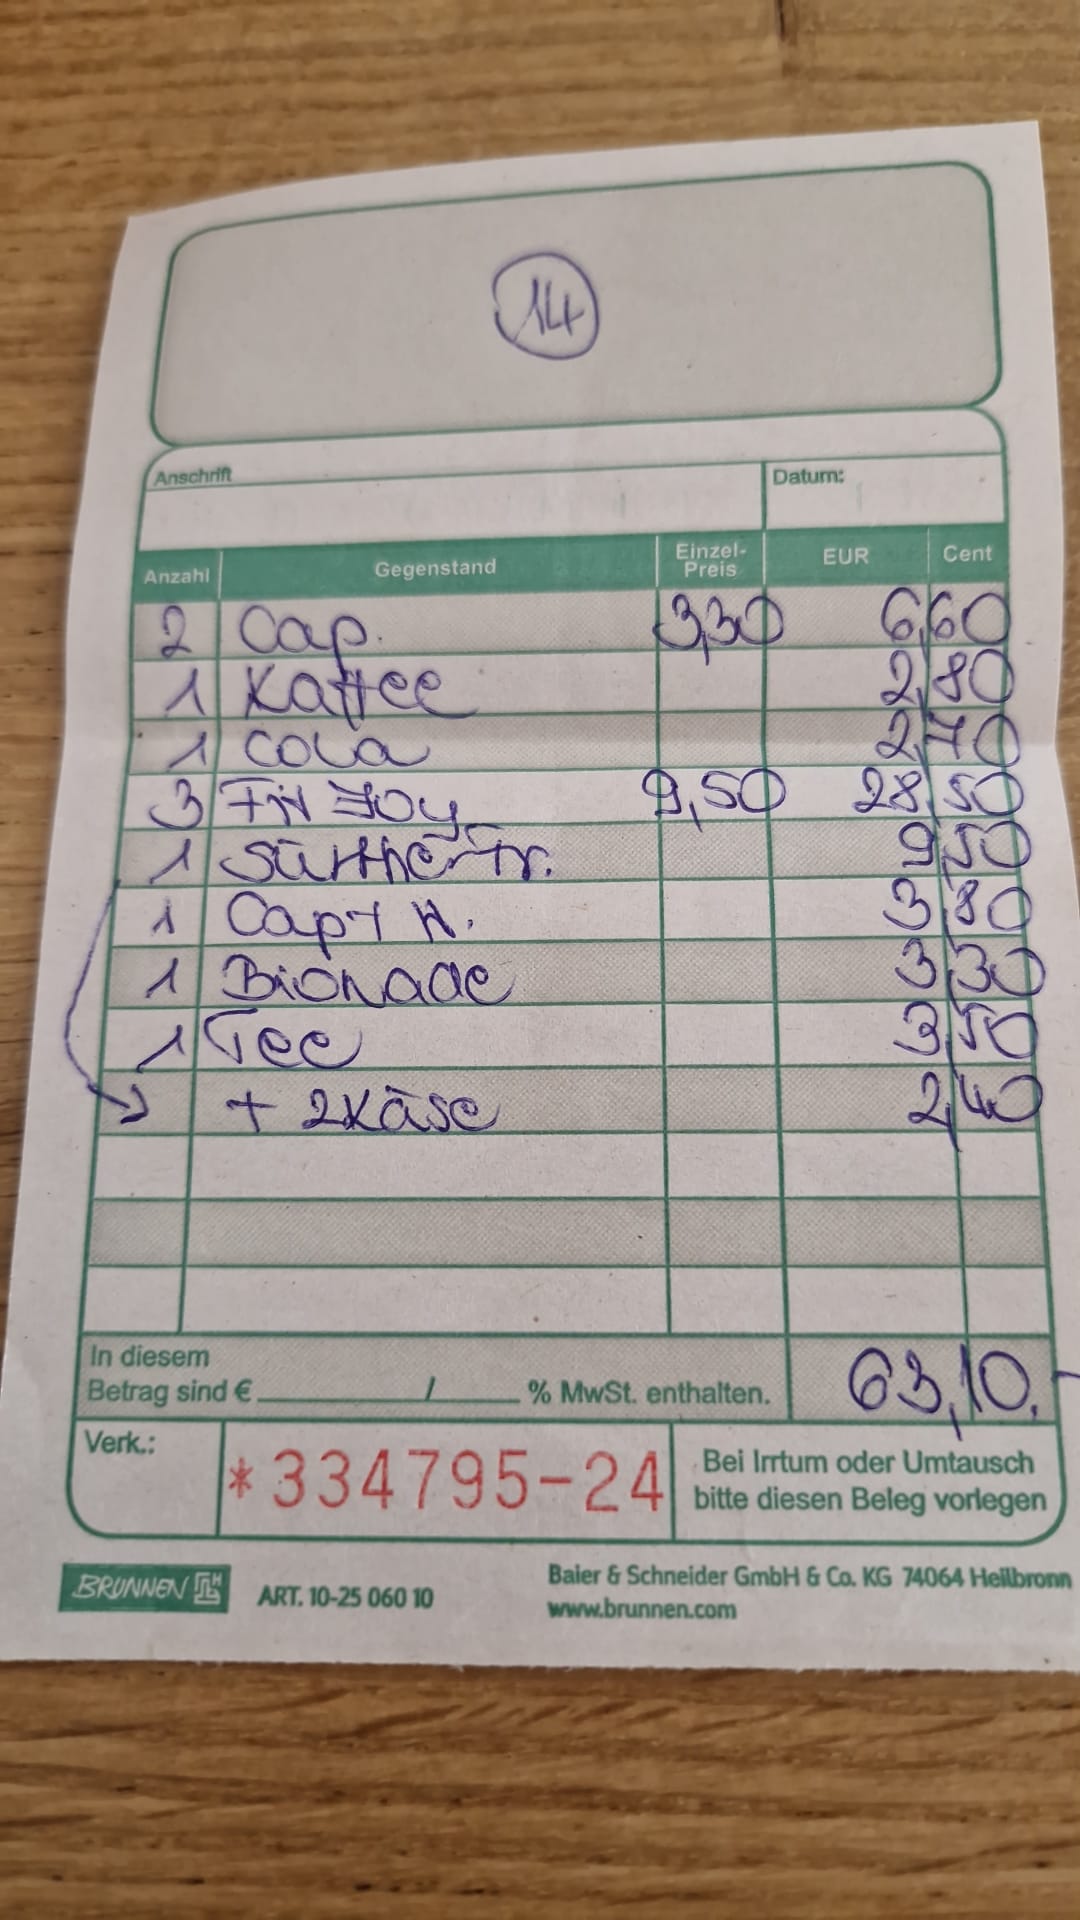 14
Anschrift Datum:
Anzahl Gegenstand Einzel-Preis EUR Cent
2 Cap. 3,30 6,60
1 Kaffee 2,80
1 Cola 2,70
3 Fit Joy 9,50 28,50
1 Fr. 9,50
1 Cap + H. 3,80
1 Bionade 3,30
1 Tee 3,50
+ 2 Käse 2,40
In diesem
Betrag sind € / % MwSt. enthalten. 63,10.
Verk.: *334795-24 Bei Irrtum oder Umtausch
bitte diesen Beleg vorlegen
BRUNNEN ART. 10-25 060 10 Baier & Schneider GmbH & Co. KG 74064 Heilbronn
www.brunnen.com